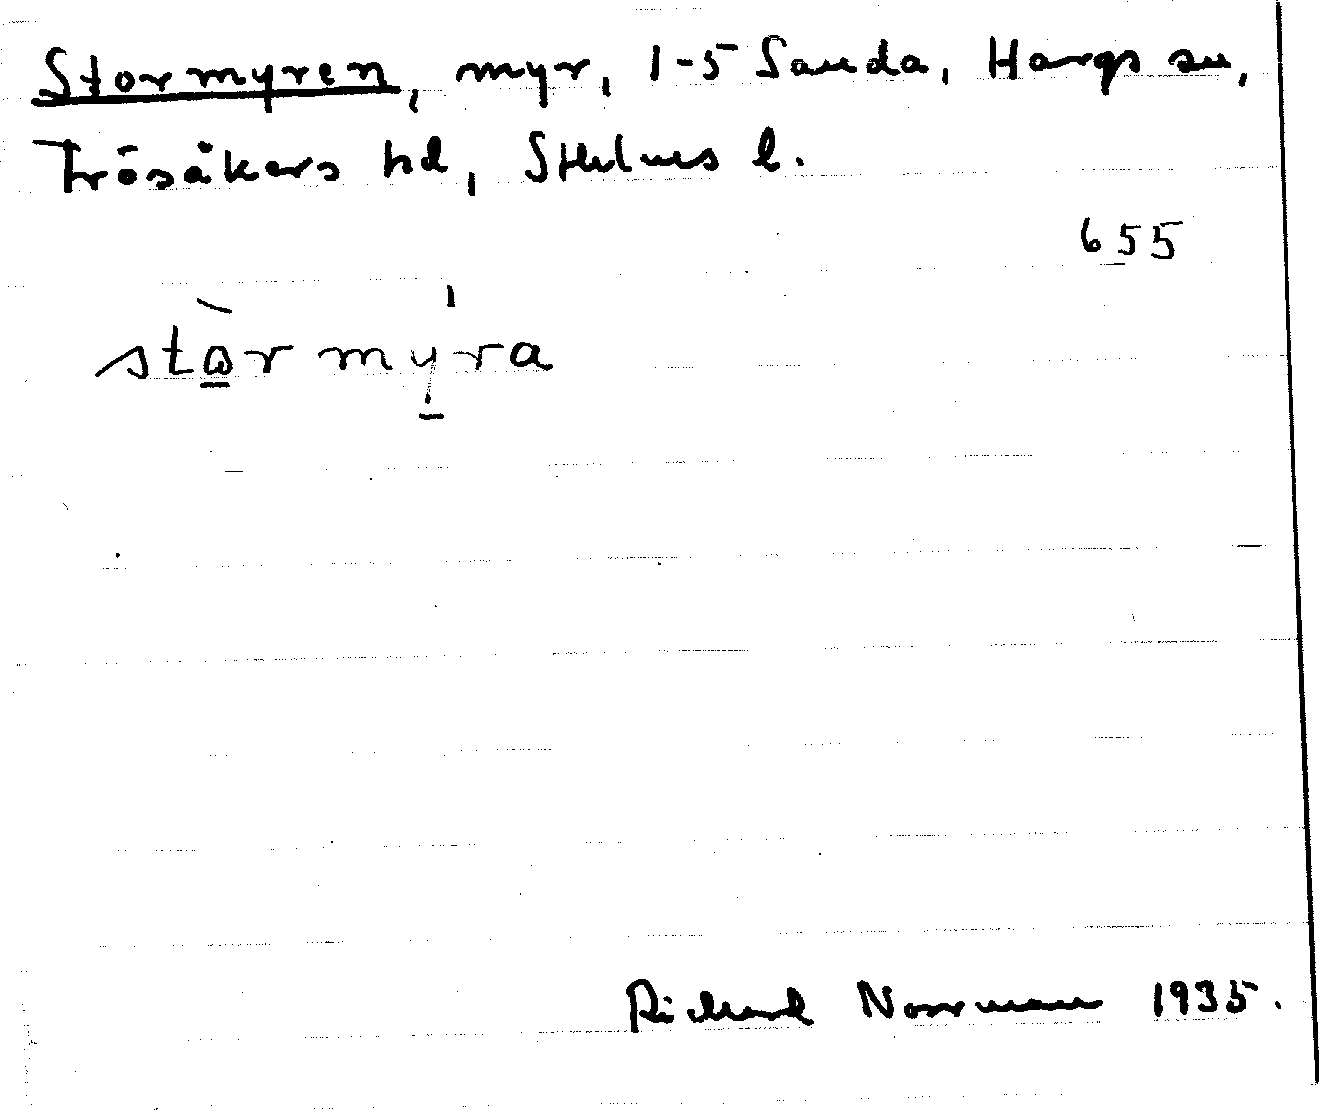 Stormyren, myr, 1-5 Sanda, Hargs sn,
Frösåkers hd, Sthlms l.
655
stòrmýra
Richard Norrman 1935.